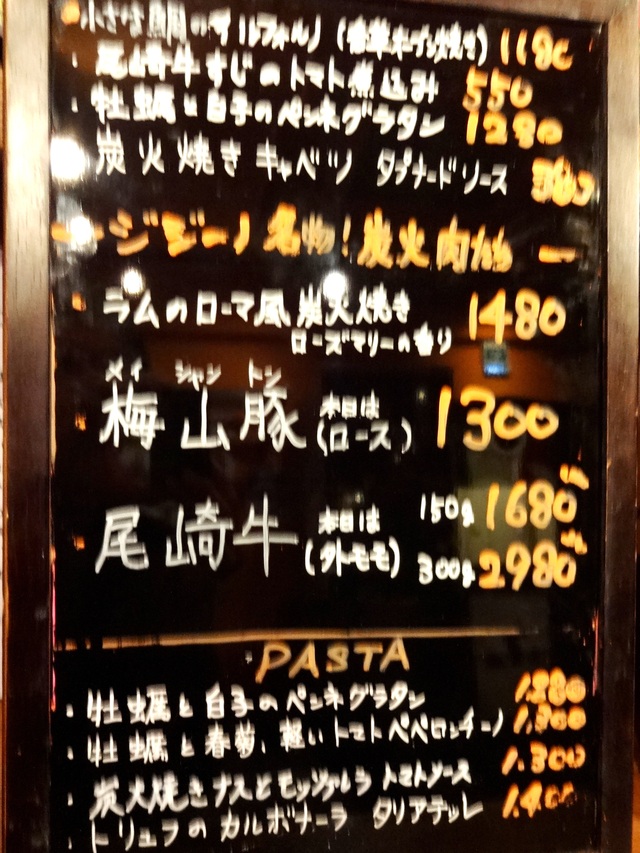 小さな鯛のアルフォルノ (香草オーブン焼き) 1180
尾崎牛すじのトマト煮込み 550
牡蠣と白子のペンネグラタン 1280
炭火焼きキャベツ タプナードソース
ジジーノ名物!炭火肉焼
ラムのローマ風炭火焼き 1480
ローズマリーの香り
メイ シャン トン
梅山豚 本日は(ロース) 1300
尾崎牛 本日は(外モモ) 150g 1680
300g 2980
PASTA
・牡蠣と白子のペンネグラタン 1280
・牡蠣と春菊、軽いトマトペペロンチーノ 1.300
・炭火焼きナスとモッツァレラ トマトソース 1.300
・トリュフのカルボナーラ タリアテッレ 1.400